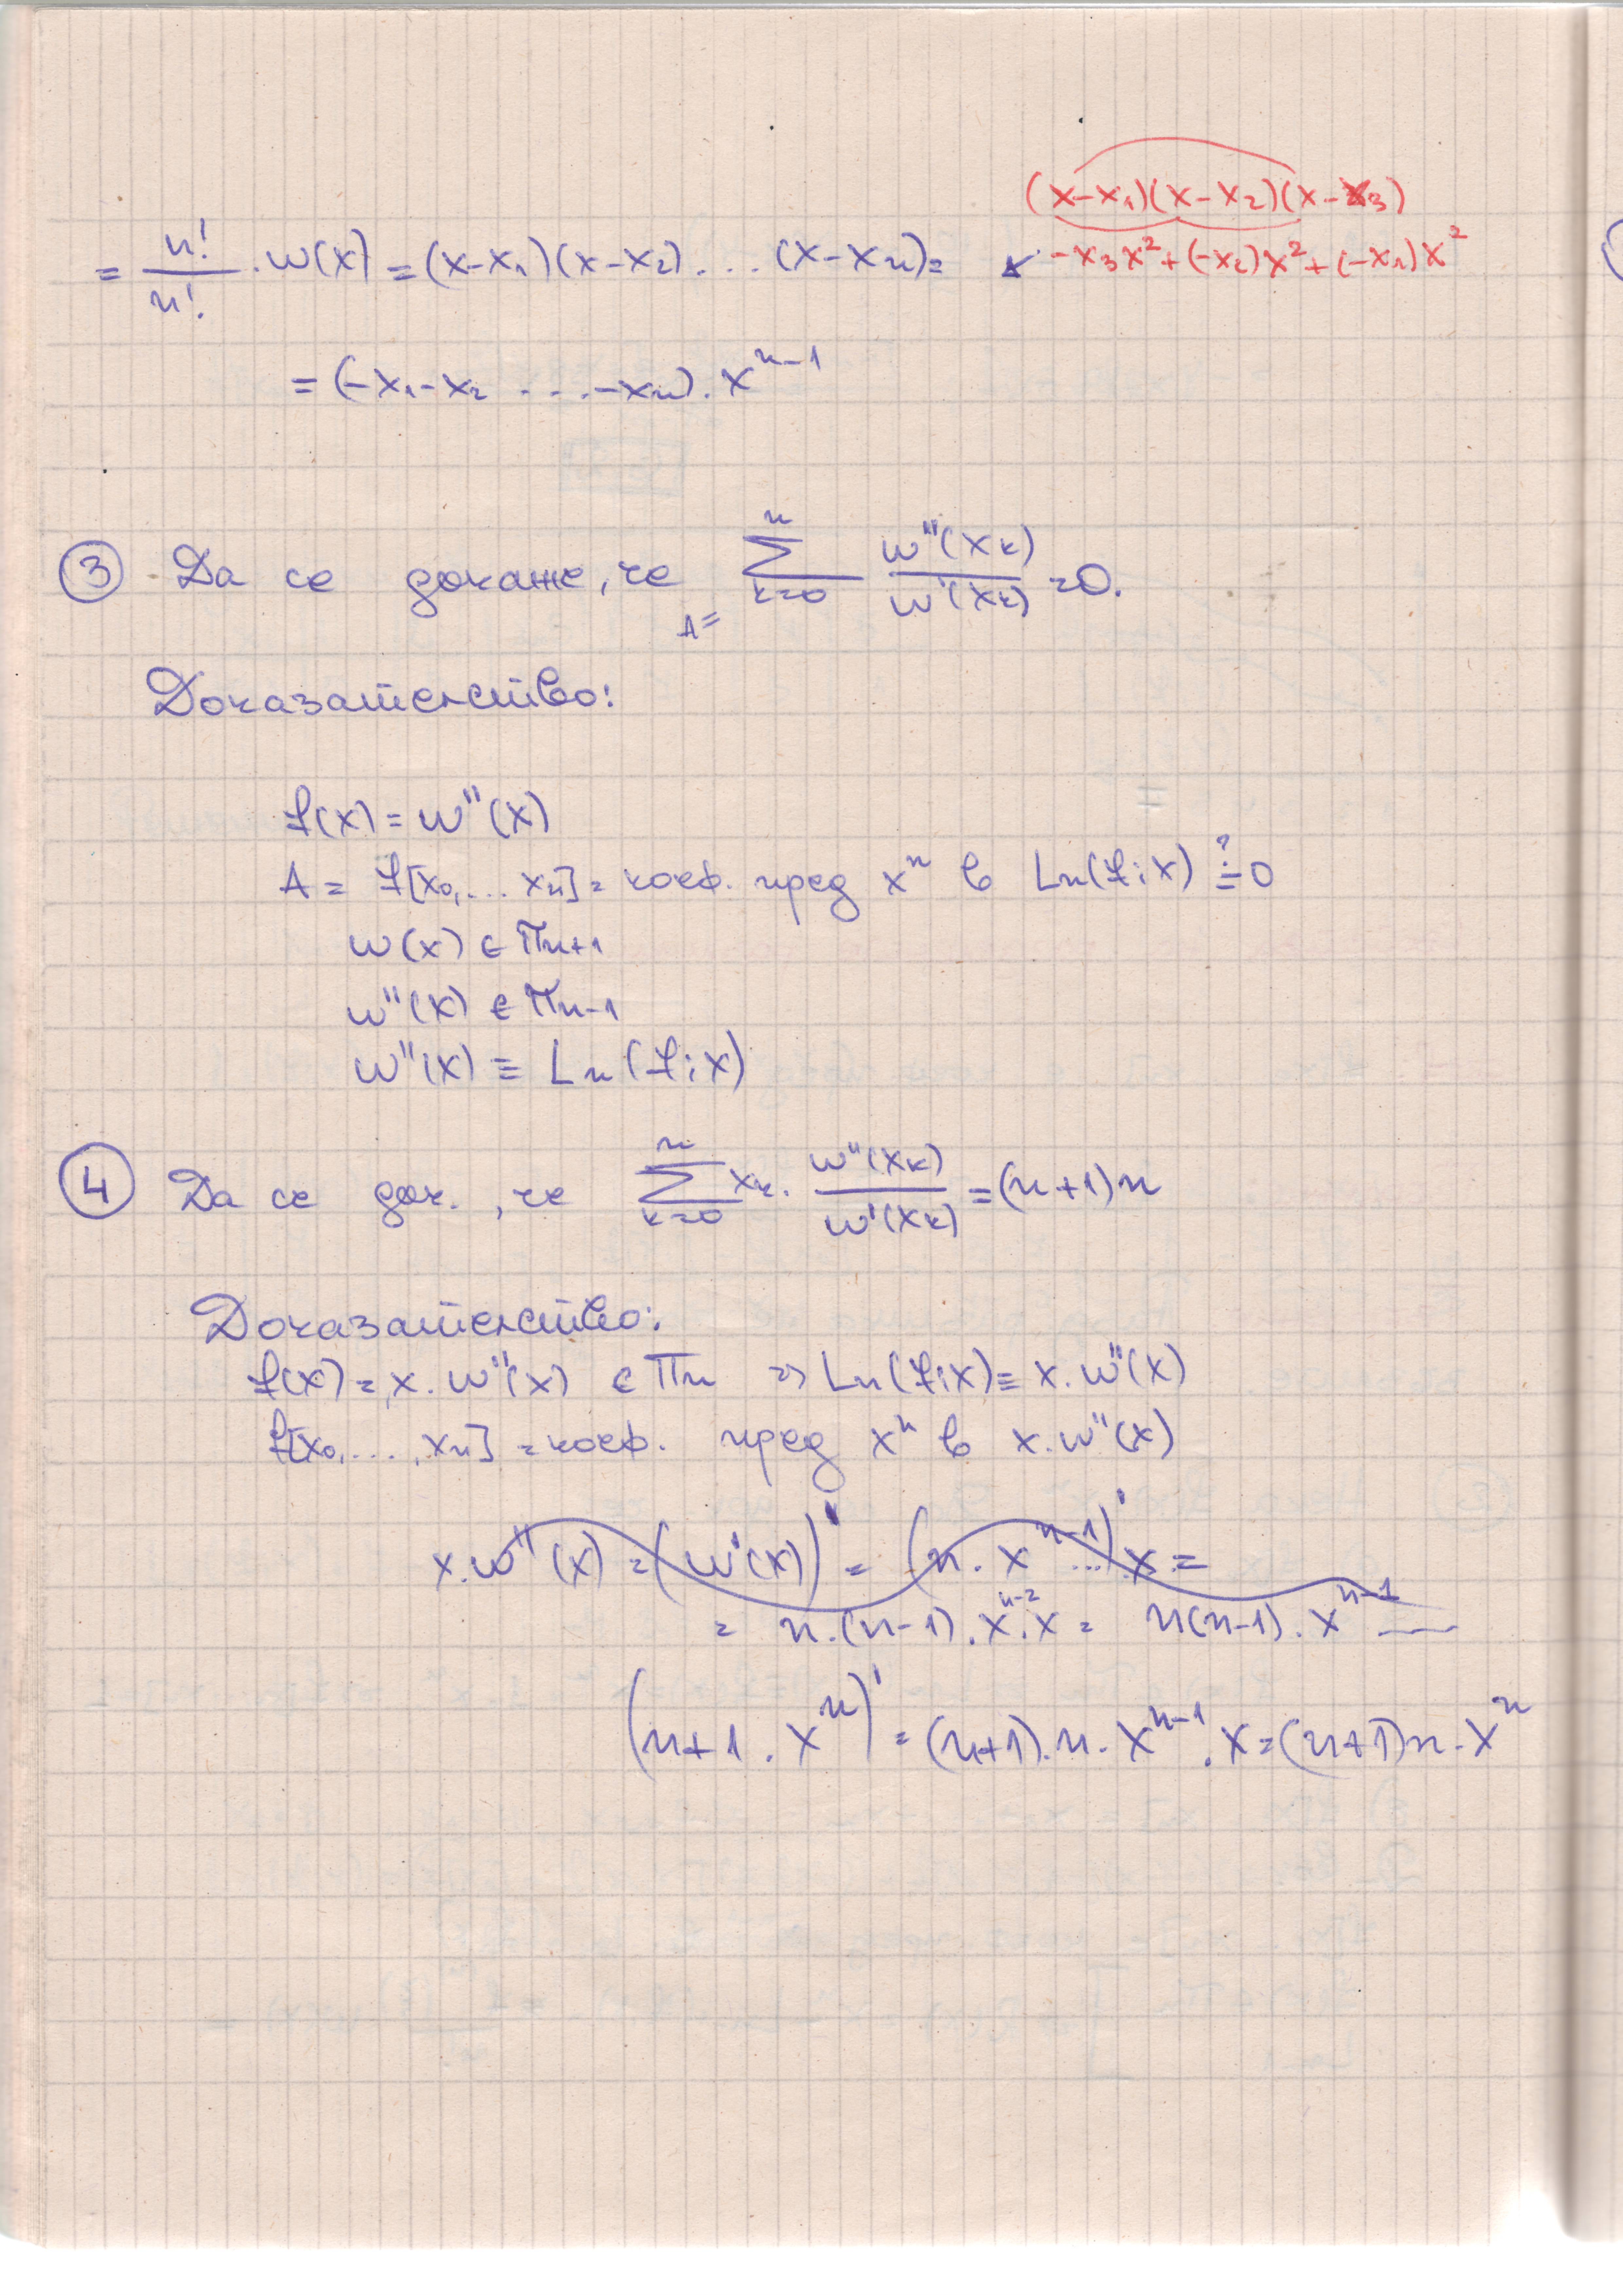 (x-x₁)(x-x₂)(x-x₃)
= n!/n! . ω(x) = (x-x₁)(x-x₂) . . . (x-xₙ) = -x₃x² + (-x₂)x² + (-x₁)x²
= (-x₁-x₂ . . . -xₙ) . xⁿ⁻¹
③ Да се докаже, че A = ∑ₖ₌₀ⁿ ω''(xₖ)/ω'(xₖ) = 0.
Доказателство:
f(x) = ω''(x)
A = f[x₀, ... xₙ] = коеф. пред xⁿ в Lₙ(f;x) ?= 0
ω(x) ∈ πₙ₊₁
ω''(x) ∈ πₙ₋₁
ω''(x) ≡ Lₙ(f;x)
④ Да се док., че ∑ₖ₌₀ⁿ xₖ . ω''(xₖ)/ω'(xₖ) = (n+1)n
Доказателство:
f(x) = x . ω''(x) ∈ πₙ => Lₙ(f;x) ≡ x . ω''(x)
f[x₀, ..., xₙ] = коеф. пред xⁿ в x . ω''(x)
x . ω''(x) = (ω'(x))' = (n . xⁿ⁻¹ ...)' . x =
= n . (n-1) . xⁿ⁻² . x = n(n-1) . xⁿ⁻¹
(n+1 . xⁿ)' = (n+1) . n . xⁿ⁻¹ . x = (n+1)n . xⁿ